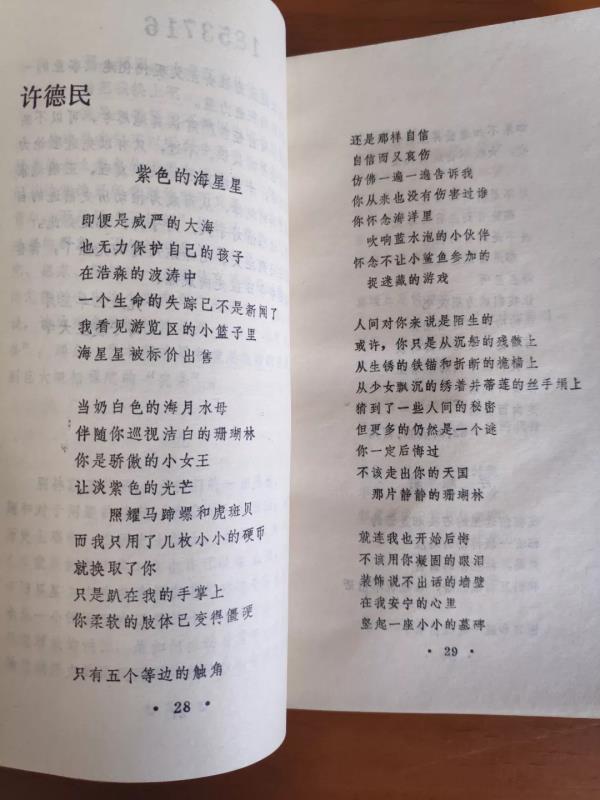 许德民
紫色的海星星
即便是威严的大海
也无力保护自己的孩子
在浩淼的波涛中
一个生命的失踪已不是新闻了
我看见游览区的小篮子里
海星星被标价出售
当奶白色的海月水母
伴随你巡视洁白的珊瑚林
你是骄傲的小女王
让淡紫色的光芒
照耀马蹄螺和虎斑贝
而我只用了几枚小小的硬币
就换取了你
只是趴在我的手掌上
你柔软的肢体已变得僵硬
只有五个等边的触角
• 28 •
还是那样自信
自信而又哀伤
仿佛一遍一遍告诉我
你从来也没有伤害过谁
你怀念海洋里
吹响蓝水泡的小伙伴
怀念不让小鲨鱼参加的
捉迷藏的游戏
人间对你来说是陌生的
或许，你只是从沉船的残骸上
从生锈的铁锚和折断的桅樯上
从少女飘沉的绣着并蒂莲的丝手绢上
猜到了一些人间的秘密
但更多的仍然是一个谜
你一定后悔过
不该走出你的天国
那片静静的珊瑚林
就连我也开始后悔
不该用你凝固的眼泪
装饰说不出话的墙壁
在我安宁的心里
竖起一座小小的墓碑
• 29 •
1853716